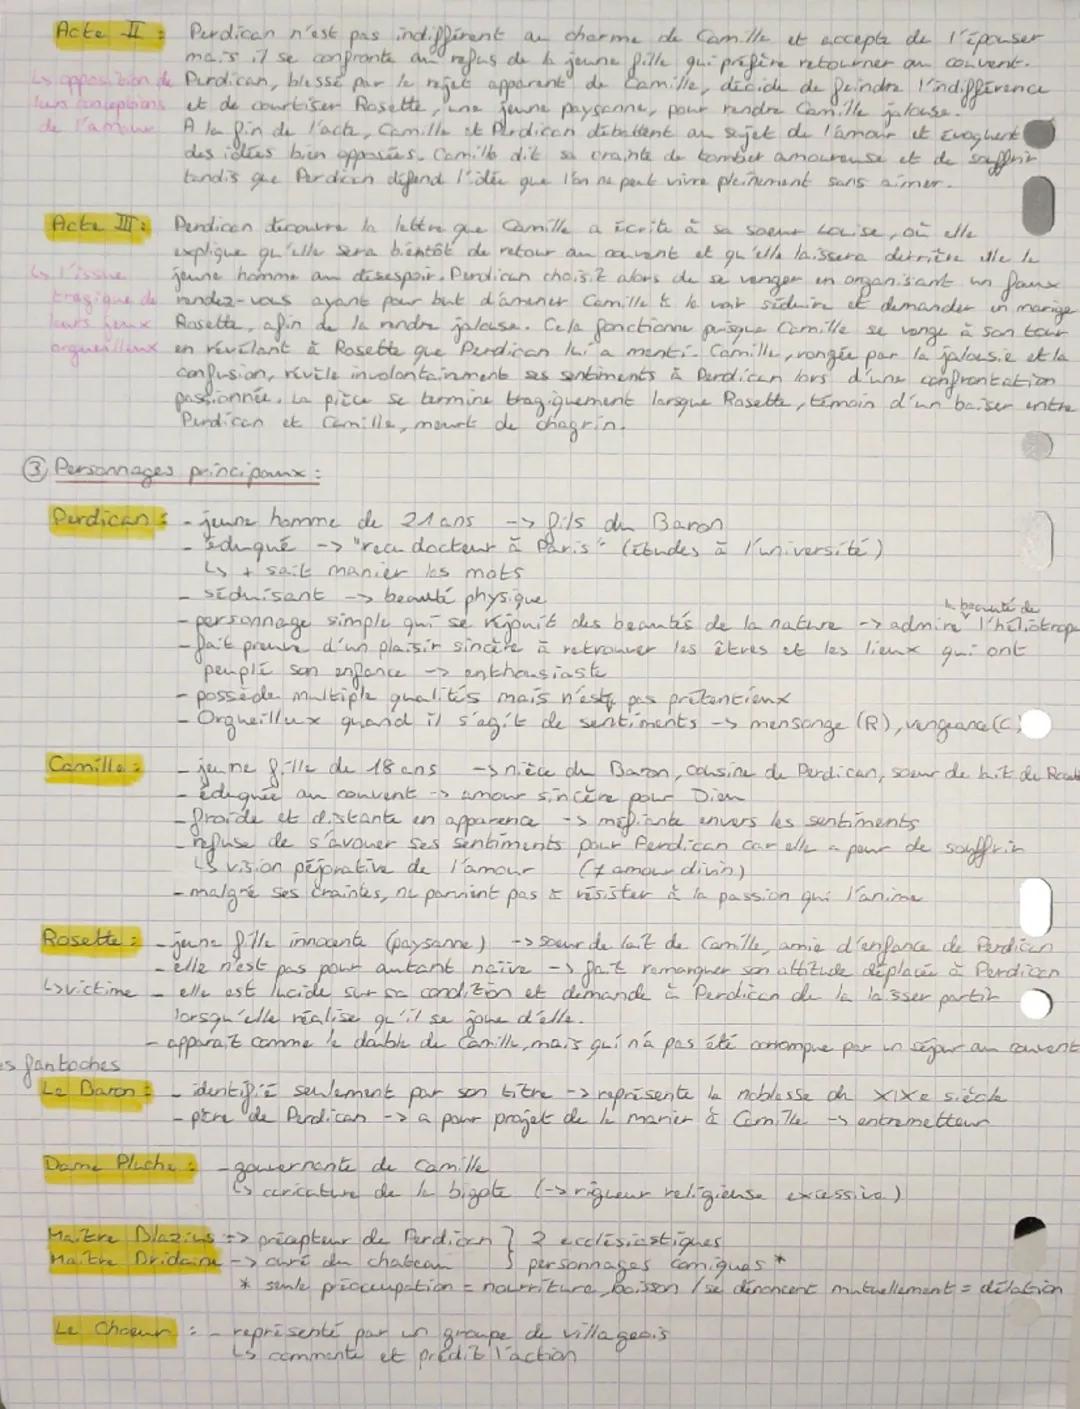 Acte II : Perdican n'est pas indifférent au charme de Camille et accepte de l'épouser
mais il se confronte au refus de la jeune fille qui préfère retourner au couvent.
↳ opposition de Perdican, blessé par le rejet apparent de Camille, décide de feindre l'indifférence
leurs conceptions et de courtiser Rosette, une jeune paysanne, pour rendre Camille jalouse.
de l'amour A la fin de l'acte, Camille et Perdican débattent au sujet de l'amour et évoquent
des idées bien opposées. Camille dit sa crainte de tomber amoureuse et de souffrir
tandis que Perdican défend l'idée que l'on ne peut vivre pleinement sans aimer.
Acte III : Perdican découvre la lettre que Camille a écrite à sa soeur Louise, où elle
explique qu'elle sera bientôt de retour au couvent et qu'elle laissera derrière elle le
↳ l'issue jeune homme au désespoir. Perdican choisit alors de se venger en organisant un faux
tragique de rendez-vous ayant pour but d'amener Camille à le voir séduire et demander en mariage
leurs jeux Rosette, afin de la rendre jalouse. Cela fonctionne puisque Camille se venge à son tour
orgueilleux en révélant à Rosette que Perdican lui a menti. Camille, rongée par la jalousie et la
confusion, révèle involontairement ses sentiments à Perdican lors d'une confrontation
passionnée. La pièce se termine tragiquement lorsque Rosette, témoin d'un baiser entre
Perdican et Camille, meurt de chagrin.
③ Personnages principaux :
Perdican : - jeune homme de 21 ans -> fils du Baron
- éduqué -> "recu docteur à Paris" (études à l'université)
↳ + sait manier les mots
- séduisant -> beauté physique
la beauté de
- personnage simple qui se réjouit des beautés de la nature -> admire l'héliotrope
- fait preuve d'un plaisir sincère à retrouver les êtres et les lieux qui ont
peuplé son enfance -> enthousiaste
- possède multiple qualités mais n'est pas prétentieux
- Orgueillux quand il s'agit de sentiments -> mensonge (R), vengeance (C)
Camille : - jeune fille de 18 ans -> nièce du Baron, cousine de Perdican, soeur de lait de
- éduquée au couvent -> amour sincère pour Dieu
- froide et distante en apparence -> méfiante envers les sentiments
- refuse de s'avouer ses sentiments pour Perdican car elle a peur de souffrir
↳ vision péjorative de l'amour (≠ amour divin)
- malgré ses craintes, ne parvient pas à résister à la passion qui l'anime
Rosette : - jeune fille innocente (paysanne) -> soeur de lait de Camille, amie d'enfance de Perdican
- elle n'est pas pour autant naïve -> fait remarquer son attitude déplacée à Perdican
↳ victime - elle est lucide sur sa condition et demande à Perdican de la laisser partir
lorsqu'elle réalise qu'il se joue d'elle.
- apparait comme le double de Camille, mais qui n'a pas été corrompue par un séjour au couvent
es fantoches
Le Baron : - identifié seulement par son titre -> représente la noblesse du XIXe siècle
- père de Perdican -> a pour projet de le marier à Camille -> entremetteur
Dame Pluche : - gouvernante de Camille
↳ caricature de la bigote (-> rigueur religieuse excessive)
Maître Blazius -> précepteur de Perdican } 2 ecclésiastiques
Maître Bridaine -> curé du chateau } personnages comiques *
* seule préoccupation = nourriture, boisson / se dénoncent mutuellement = délation
Le Choeur : - représenté par un groupe de villageois
↳ commente et prédit l'action